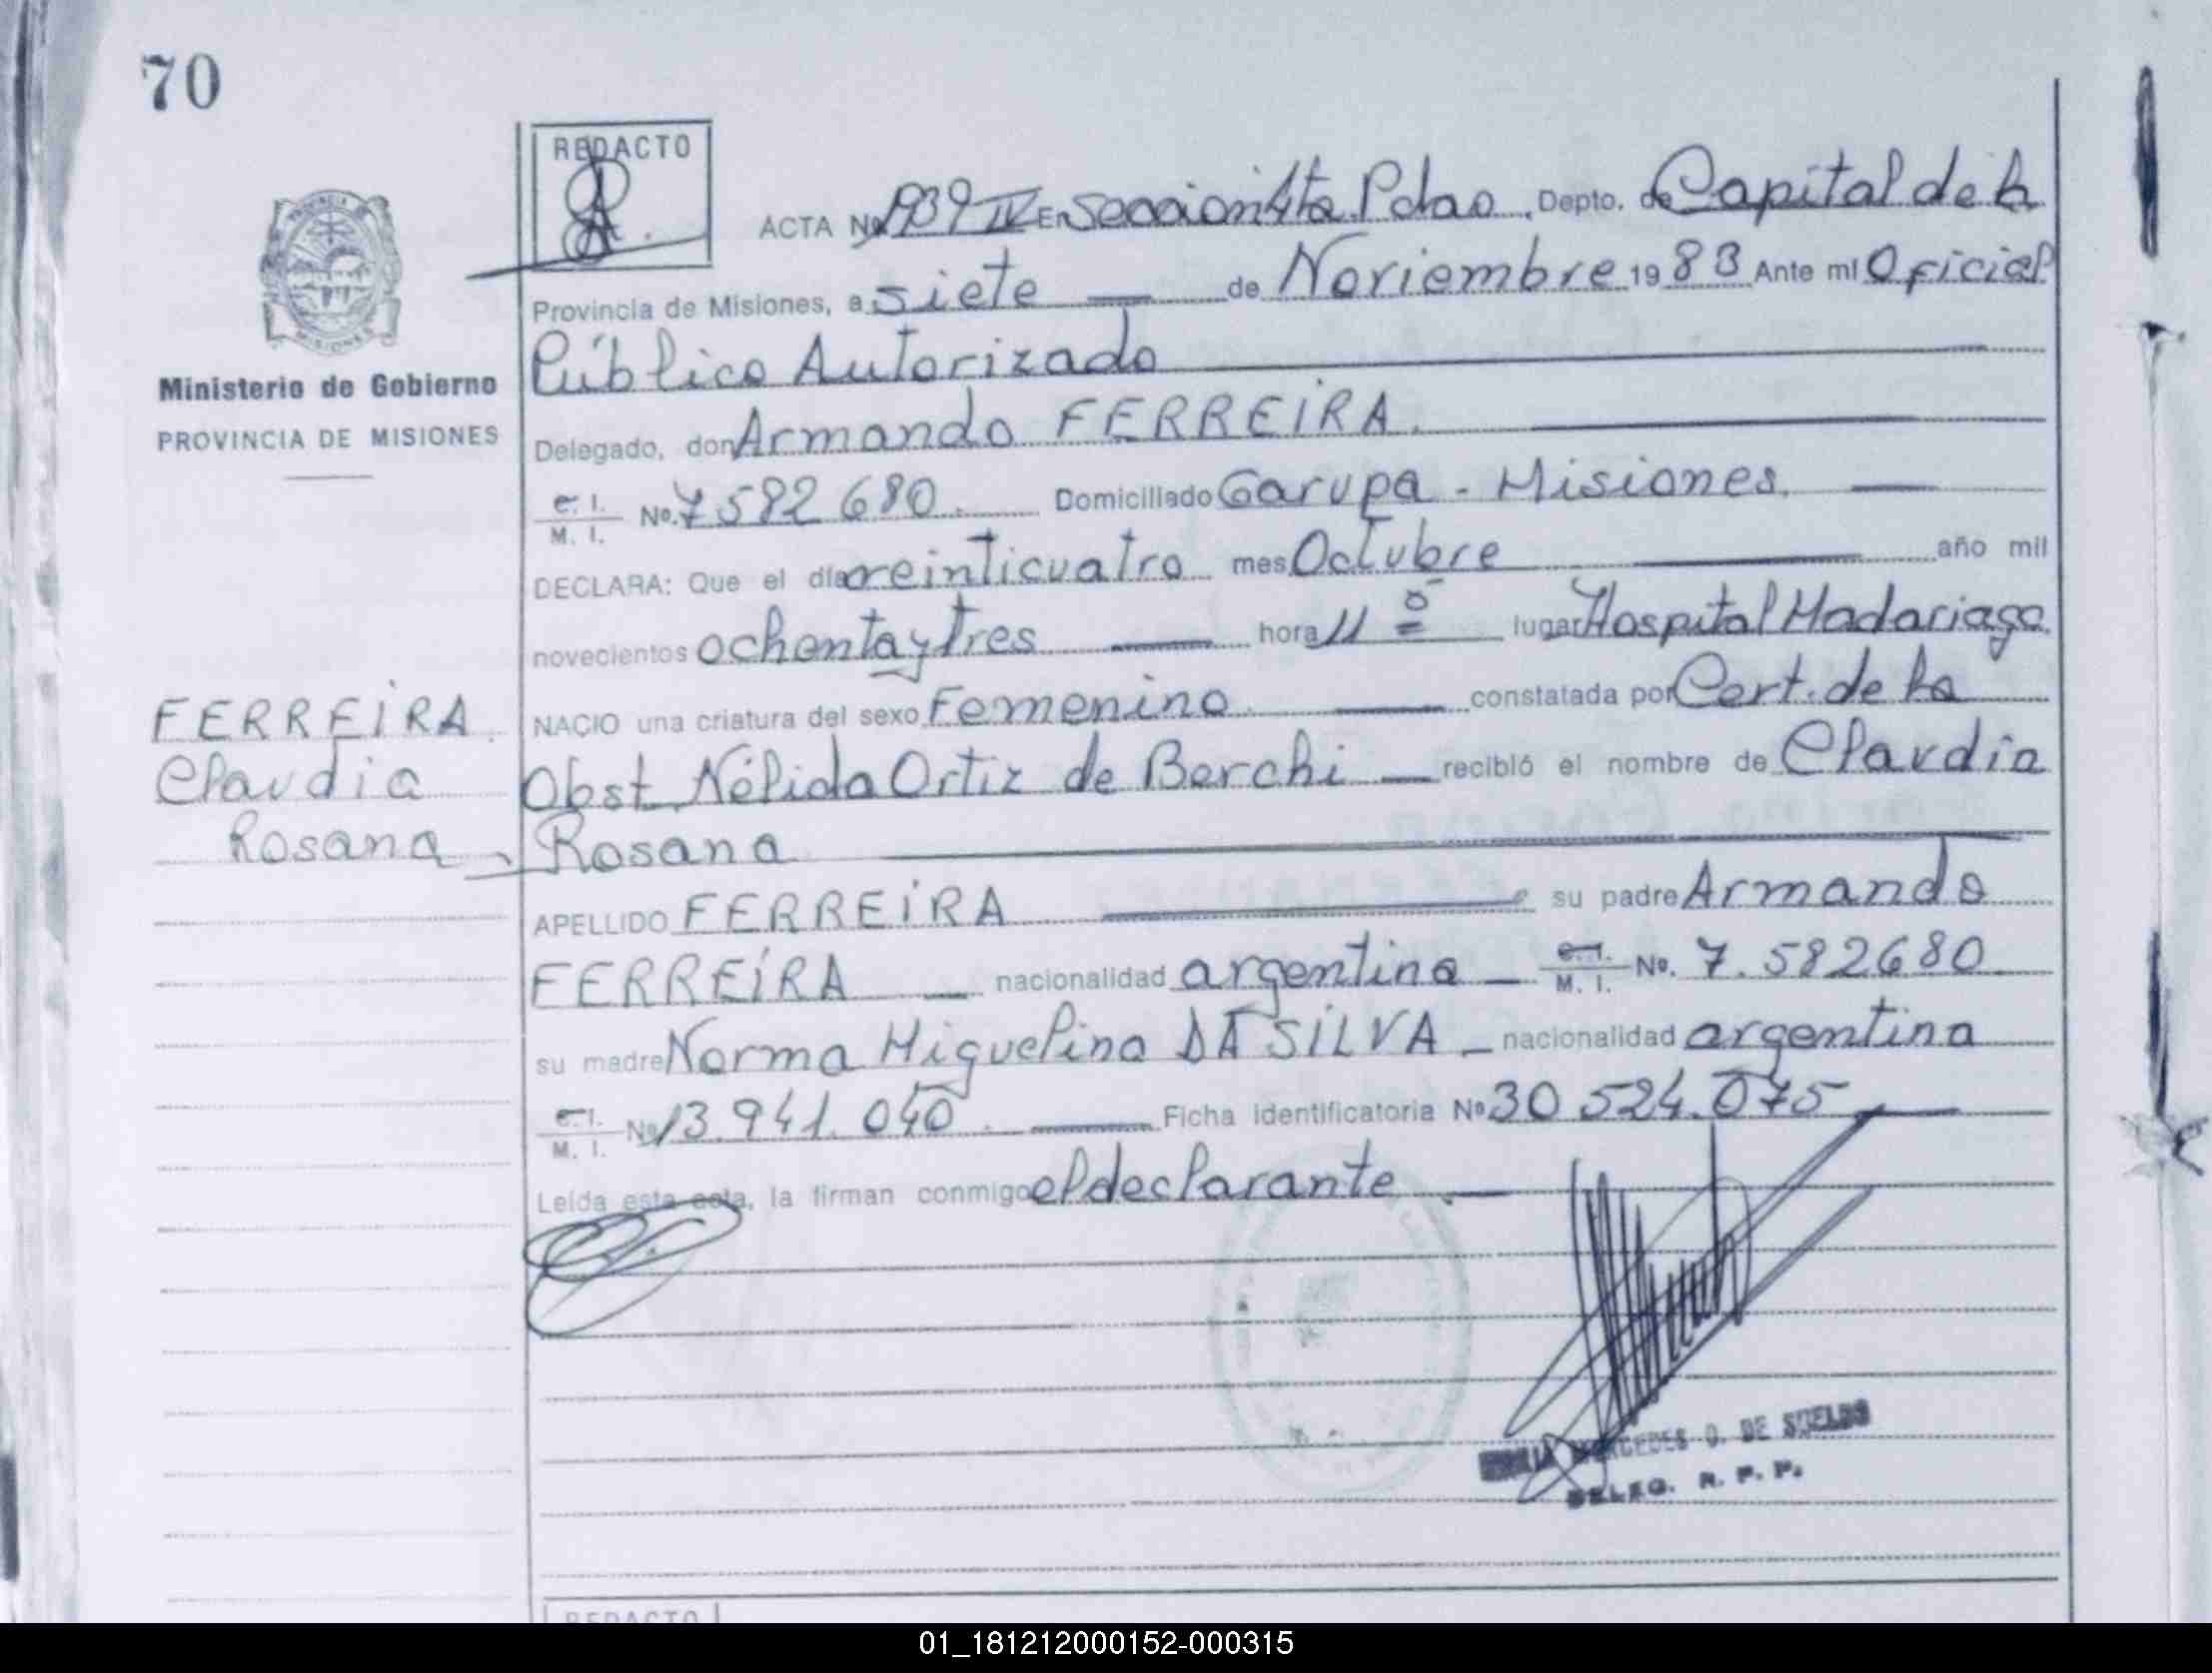 70
REDACTO
ACTA No 1939 IV En Sección 4ta. Pdas. Depto. de Capital de la
Provincia de Misiones, a siete de Noviembre 1983 Ante mí Oficial
Público Autorizado
Ministerio de Gobierno
PROVINCIA DE MISIONES
Delegado, don Armando FERREIRA.
C. I. M. I. No. 7582680. Domiciliado Garupa - Misiones.
DECLARA: Que el día veinticuatro mes Octubre año mil
novecientos ochenta y tres hora 11 lugar Hospital Madariaga
FERREIRA.
Claudia
Rosana
NACIO una criatura del sexo Femenino. constatada por Cert. de la
Obst. Nélida Ortiz de Berchi recibió el nombre de Claudia
Rosana
APELLIDO FERREIRA su padre Armando
FERREIRA nacionalidad argentina C. I. M. I. No. 7.582680
su madre Norma Miguelina DA SILVA nacionalidad argentina
C. I. M. I. No 13.941.040. Ficha identificatoria No 30524.075
Leída esta acta, la firman conmigo el declarante.
MERCEDES O. DE SUELDO
DELEG. R. P. P.
REDACTO
01_181212000152-000315